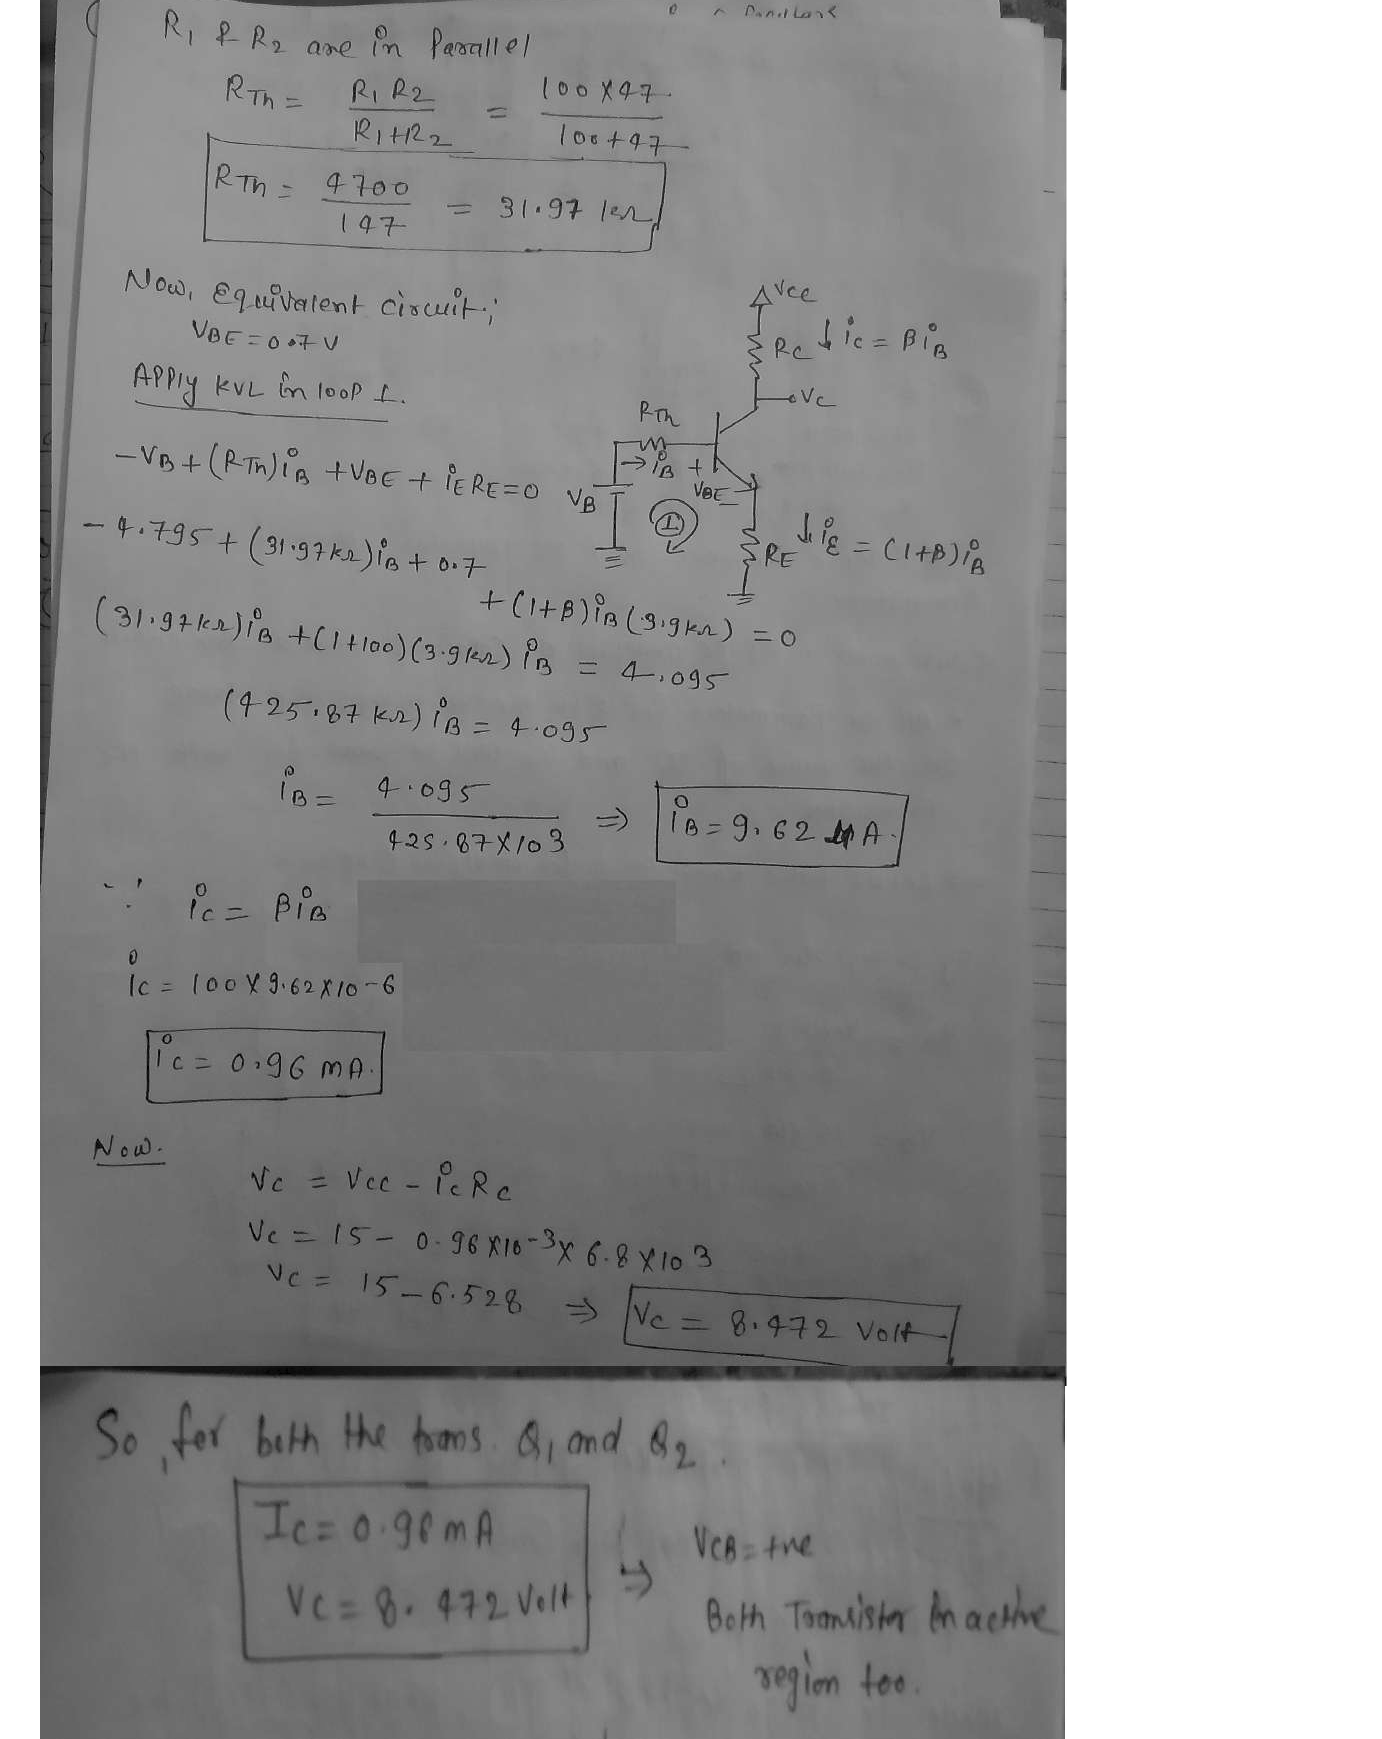 R1 & R2 are in Parallel
RTh = R1 R2 / R1+R2 = 100 X 47 / 100 + 47
RTh = 4700 / 147 = 31.97 kΩ
Now, Equivalent circuit;
VBE = 0.7 V
Apply KVL in loop 1.
VCC
RC ↓ iC = βiB
VC
RTh
→ iB +
VBE -
VB
1
RE ↓ iE = (1+β)iB
-VB + (RTh)iB + VBE + iE RE = 0
- 4.795 + (31.97kΩ)iB + 0.7
+ (1+β)iB (3.9kΩ) = 0
(31.97kΩ)iB + (1+100)(3.9kΩ) iB = 4.095
(425.87 kΩ) iB = 4.095
iB = 4.095 / 425.87 X 10^3 ⇒ iB = 9.62 μA.
∵ iC = βiB
iC = 100 X 9.62 X 10^-6
iC = 0.96 mA.
Now.
VC = VCC - iC RC
VC = 15 - 0.96 X 10^-3 X 6.8 X 10^3
VC = 15 - 6.528 ⇒ VC = 8.472 Volt
So, for both the trans. Q1 and Q2.
IC = 0.96 mA
VC = 8.472 Volt
⇒ VCB = +ve
Both Transistor in active
region too.